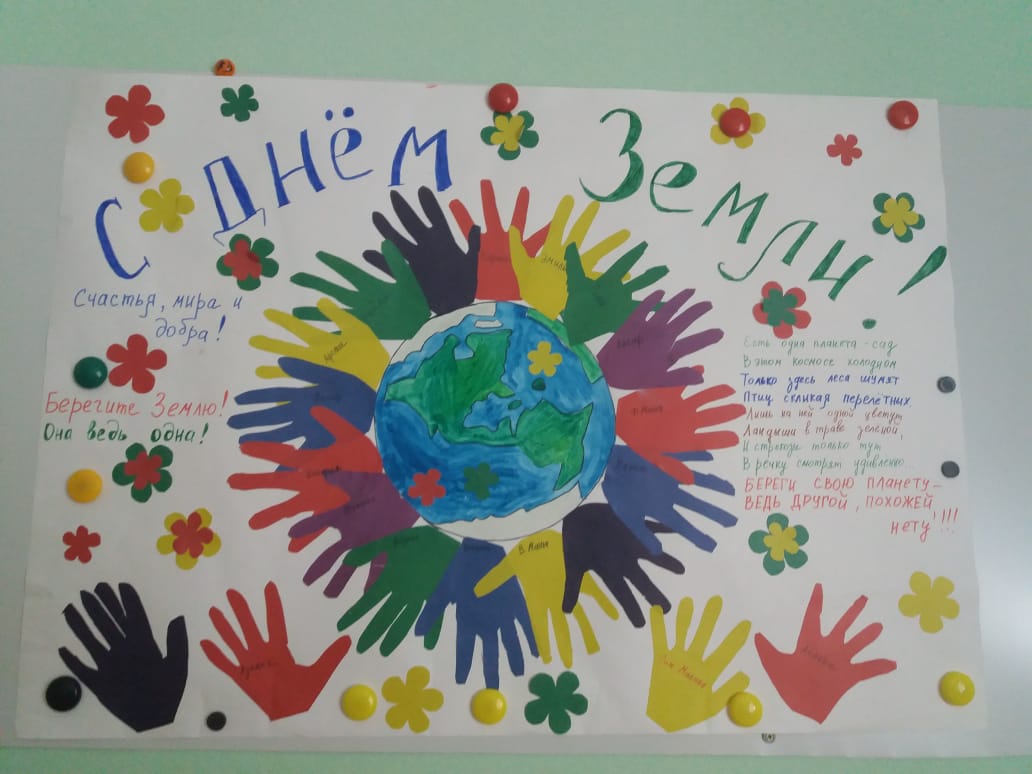 С днём Земли!
Счастья, мира и
добра!
Берегите Землю!
Она ведь одна!
Есть одна планета-сад
В этом космосе холодном
Только здесь леса шумят
Птиц скликая перелетных.
Лишь на ней одной цветут
Ландыши в траве зеленой,
И стрекозы только тут
В речку смотрят удивленно...
БЕРЕГИ СВОЮ ПЛАНЕТУ-
ВЕДЬ ДРУГОЙ, ПОХОЖЕЙ
НЕТУ!!!
В. Маша